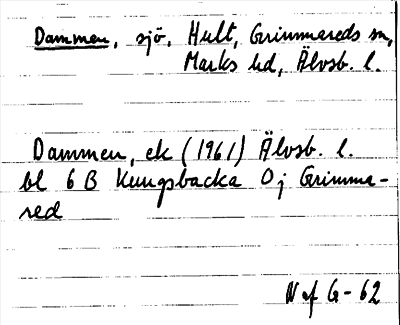 Dammen, sjö, Hult, Grimmareds sn,
Marks hd, Älvsb. l.
Dammen, ek (1961) Älvsb. l.
bl 6 B Kungsbacka 0 j Grimma-
red
N af G-62